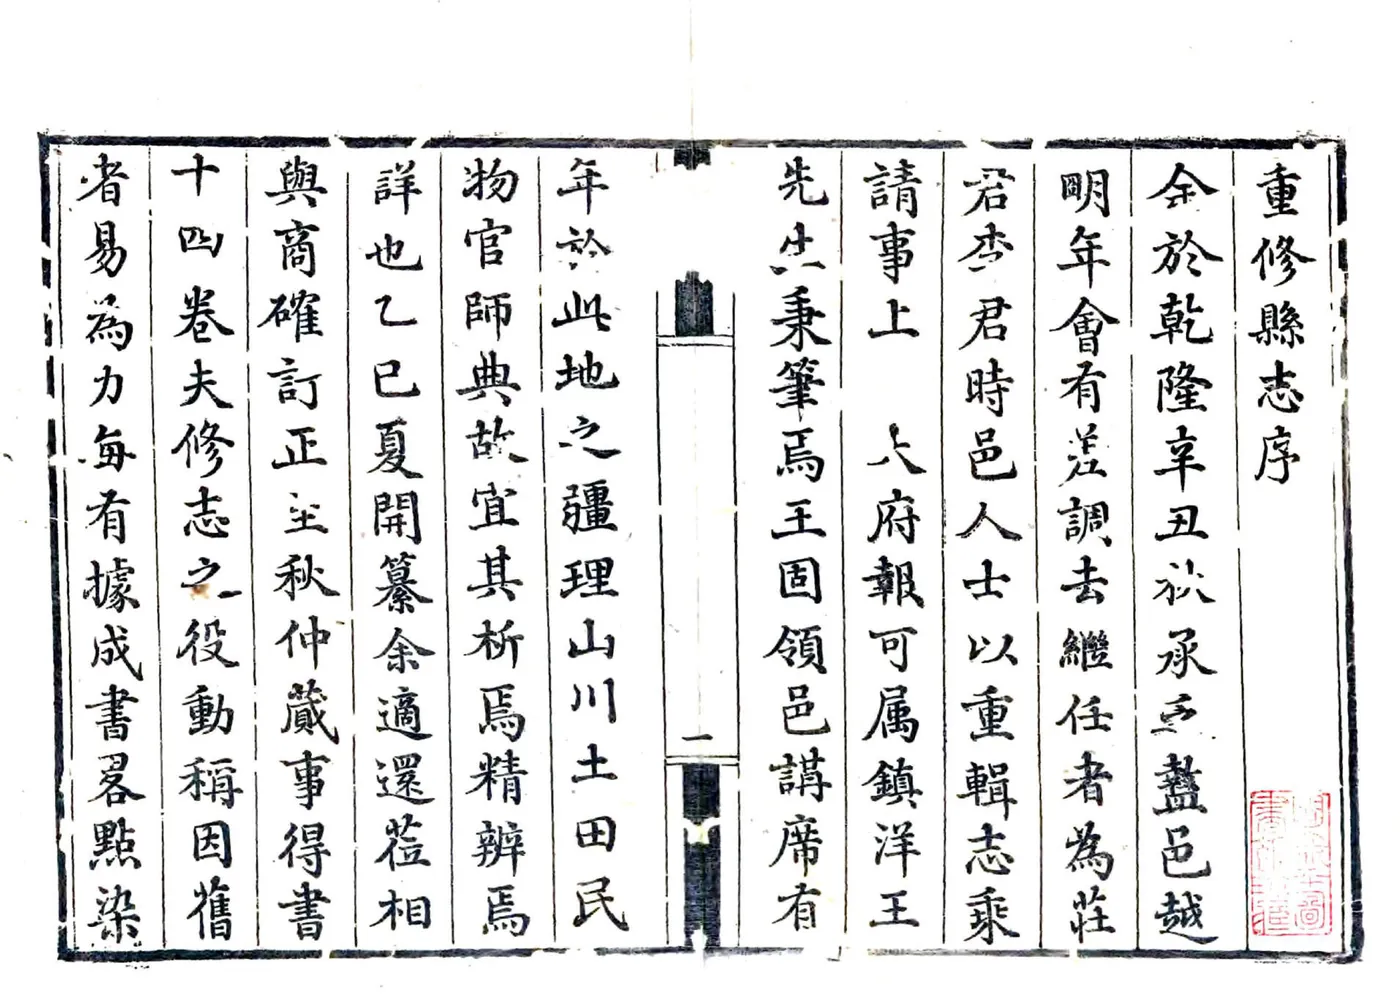 重修縣志序
余於乾隆辛丑秋承乏盩邑越
明年會有差調去繼任者為莊
君李君時邑人士以重輯志乘
請事上 大府報可属鎮洋王
先生秉筆焉王固領邑講席有
年於此地之疆理山川土田民
物官師典故宜其析焉精辨焉
詳也乙巳夏開纂余適還蒞相
與商確訂正至秋仲蕆事得書
十四卷夫修志之役動稱因舊
者易為力每有據成書畧點染
一